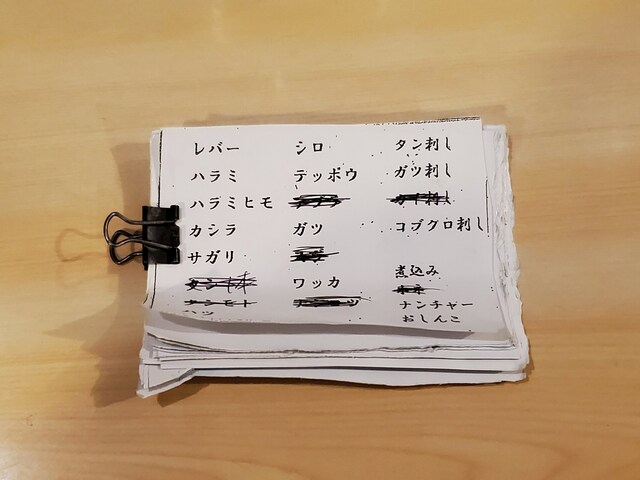 レバー
ハラミ
ハラミヒモ
カシラ
サガリ
ハツ
シロ
テッポウ
ガツ
ワッカ
タン刺し
ガツ刺し
コブクロ刺し
煮込み
ナンチャー
おしんこ